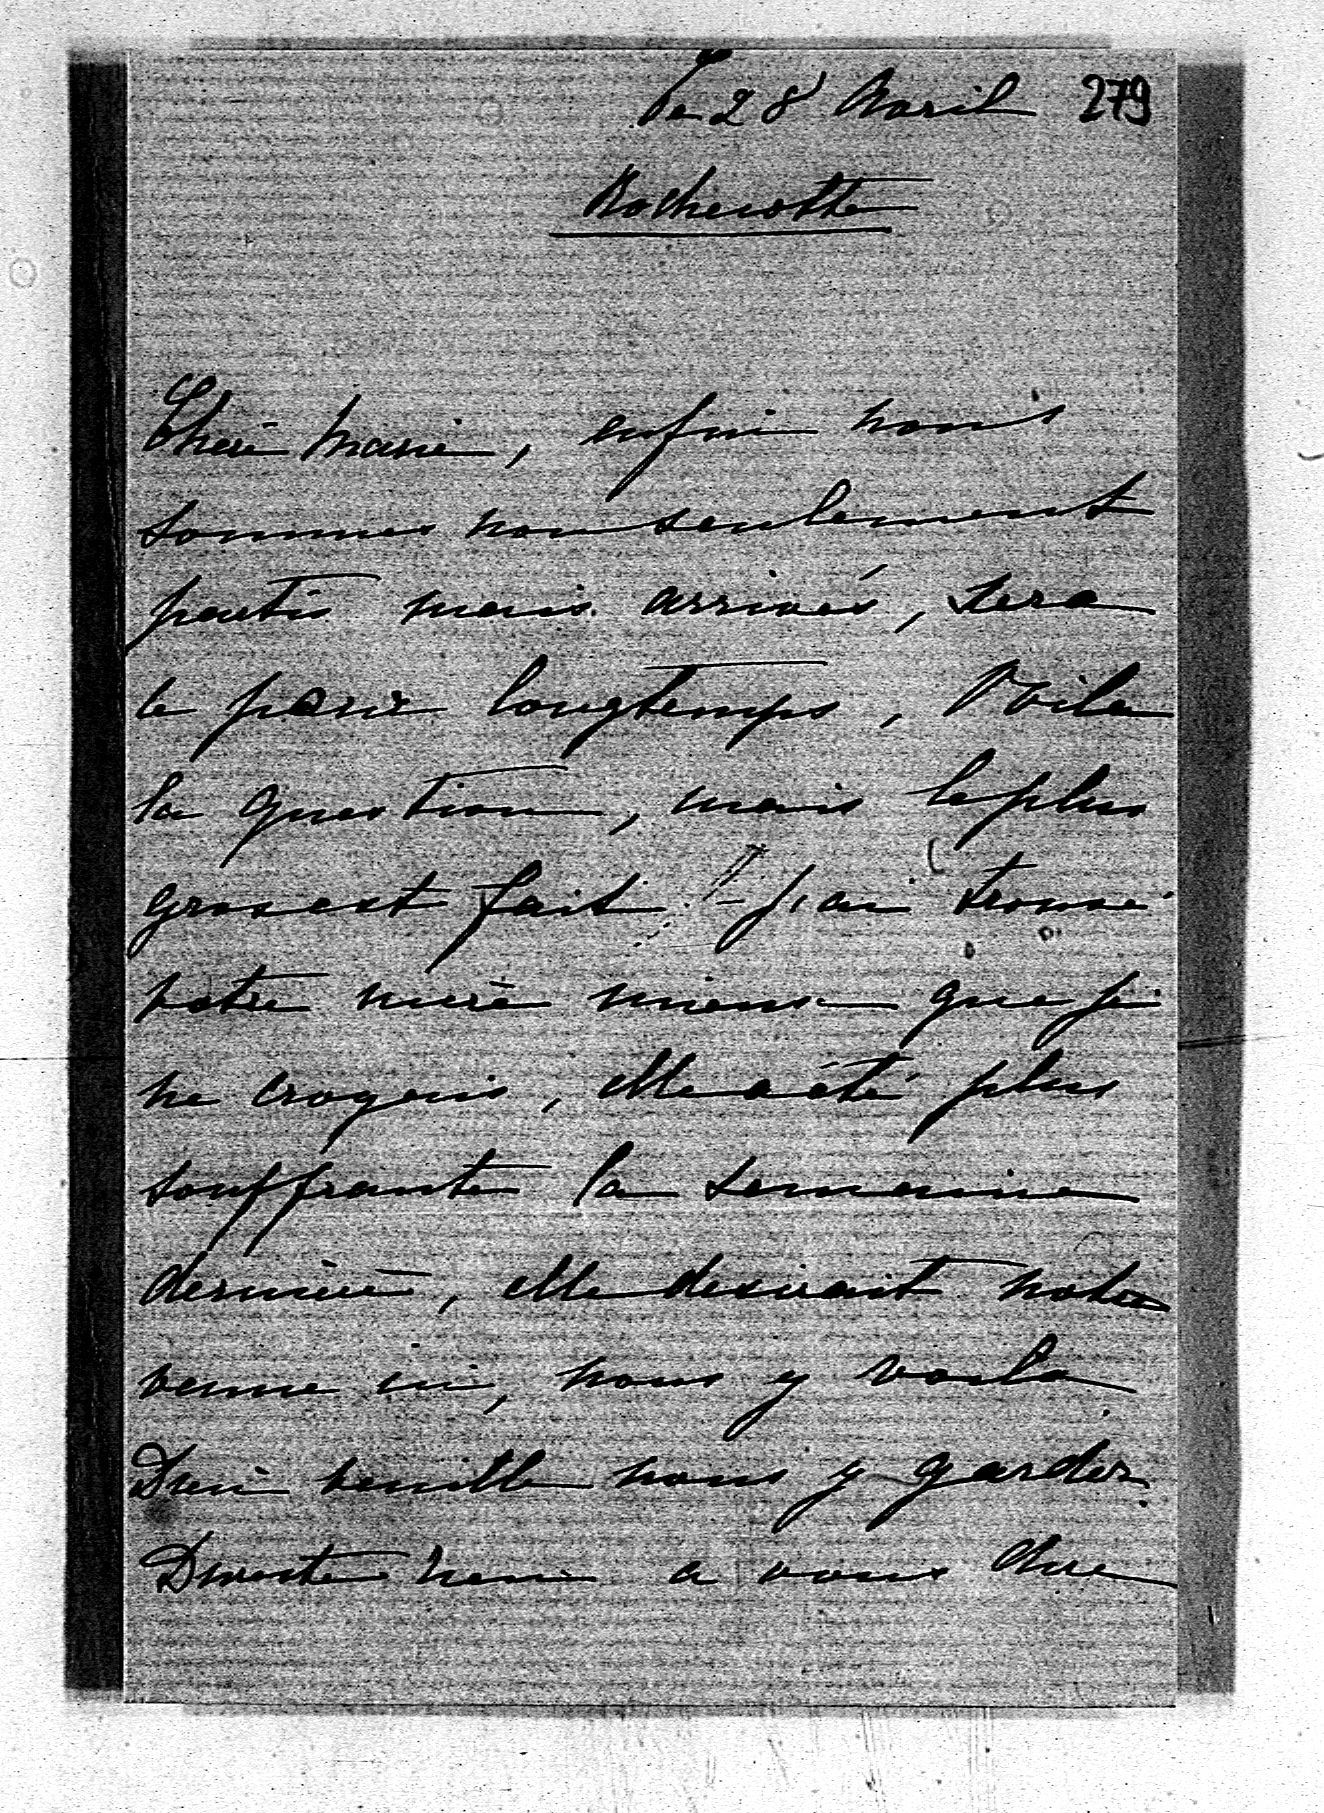 Le 28 Avril 279
Rochecotte
Chère Marie, enfin nous
sommes non seulement
partis mais arrivés, sera
ce pour longtemps, Voila
la question, mais le plus
gros est fait ! - j'ai trouvé
votre mère mieux que je
ne croyais, elle a été plus
souffrante la semaine
dernière, elle desirait notre
venue ici, nous y voila
Dieu veuille nous y garder.
a vous chre